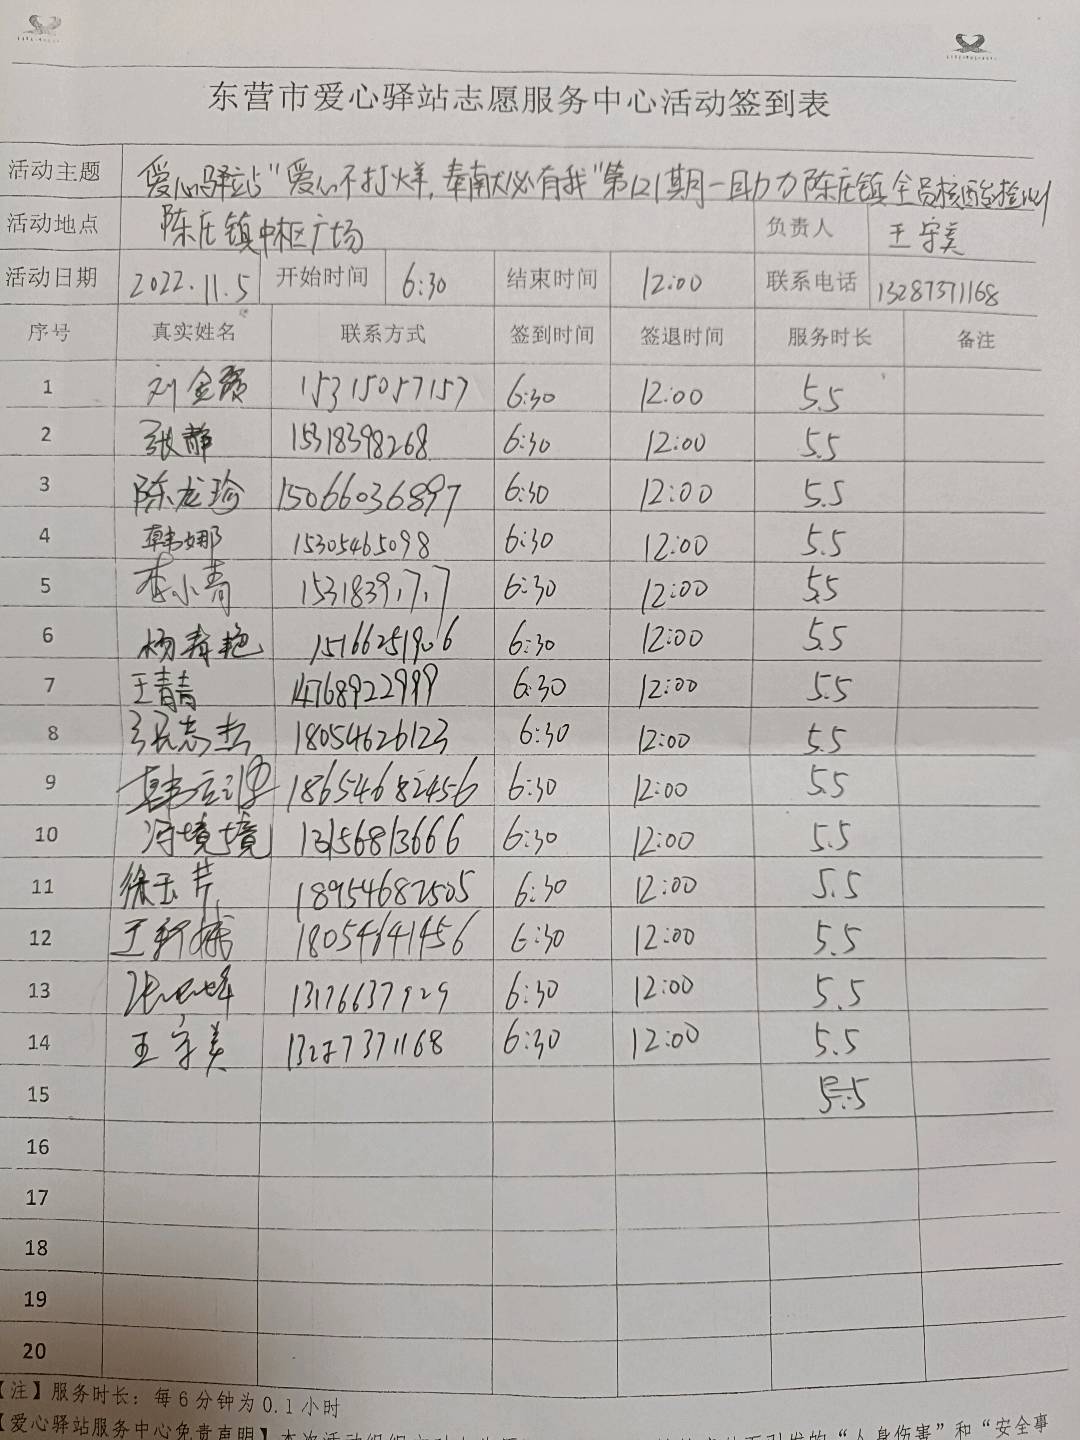 东营市爱心驿站志愿服务中心活动签到表
活动主题 爱心驿站"爱心不打烊,奉献必有我"第121期—助力陈庄镇全员核酸检测
活动地点 陈庄镇中枢广场 负责人 王守美
活动日期 2022.11.5 开始时间 6:30 结束时间 12:00 联系电话 13287371168
序号 真实姓名 联系方式 签到时间 签退时间 服务时长 备注
1 刘金 15315057157 6:30 12:00 5.5
2 张静 15318398268 6:30 12:00 5.5
3 陈龙珍 15066036897 6:30 12:00 5.5
4 韩娜 15305465098 6:30 12:00 5.5
5 李小青 15318391717 6:30 12:00 5.5
6 杨春艳 15166251906 6:30 12:00 5.5
7 王青青 14768922999 6:30 12:00 5.5
8 张志杰 18054626123 6:30 12:00 5.5
9 韩 18654682456 6:30 12:00 5.5
10 冯境境 13156813666 6:30 12:00 5.5
11 徐玉芹 18954687505 6:30 12:00 5.5
12 王 18054641456 6:30 12:00 5.5
13 13176637929 6:30 12:00 5.5
14 王守美 13287371168 6:30 12:00 5.5
15 5.5
16
17
18
19
20
【注】服务时长:每6分钟为0.1小时
【爱心驿站服务中心免责声明】本次活动组织 引发的“人身伤害”和“安全事